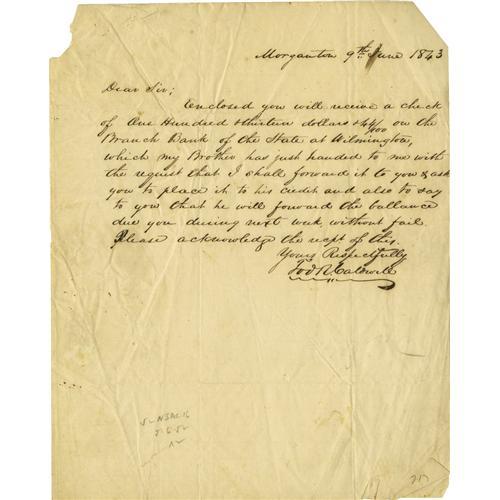 Morganton 9th June 1843
Dear Sir;
Enclosed you will receive a check
of One Hundred & thirteen dollars & 44/100 on the
Branch Bank of the State at Wilmington,
which my Brother has just handed to me with
the request that I shall forward it to you & ask
you to place it to his credit and also to say
to you that he will forward the ballance
due you during next week without fail.
Please acknowledge the recpt of this.
Yours Respectfully
Tod R. Caldwell